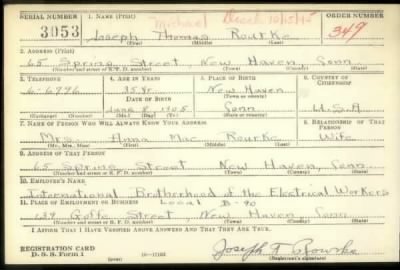 SERIAL NUMBER 1. NAME (Print) ORDER NUMBER
Michael 10/15/45
3053 Joseph Thomas Rourke 349
(First) (Middle) (Last)
2. ADDRESS (Print)
65 Spring Street, New Haven, Conn
(Number and street or R. F. D. number) (Town) (County) (State)
3. TELEPHONE 4. AGE IN YEARS 5. PLACE OF BIRTH 6. COUNTRY OF CITIZENSHIP
6-6796 35 yr. New Haven
DATE OF BIRTH (Town or county)
June 8 1905 Conn U.S.A
(Exchange) (Number) (Mo.) (Day) (Yr.) (State or country)
7. NAME OF PERSON WHO WILL ALWAYS KNOW YOUR ADDRESS 8. RELATIONSHIP OF THAT PERSON
Mrs. Anna Mae Rourke Wife
(Mr., Mrs., Miss) (First) (Middle) (Last)
9. ADDRESS OF THAT PERSON
65 Spring Street New Haven Conn
(Number and street or R. F. D. number) (Town) (County) (State)
10. EMPLOYER'S NAME
International Brotherhood of the Electrical Workers
11. PLACE OF EMPLOYMENT OR BUSINESS Local B-90
Goffe Street, New Haven Conn
(Number and street or R. F. D. number) (Town) (County) (State)
I AFFIRM THAT I HAVE VERIFIED ABOVE ANSWERS AND THAT THEY ARE TRUE.
REGISTRATION CARD
D. S. S. Form 1 (over) (Registrant's signature)